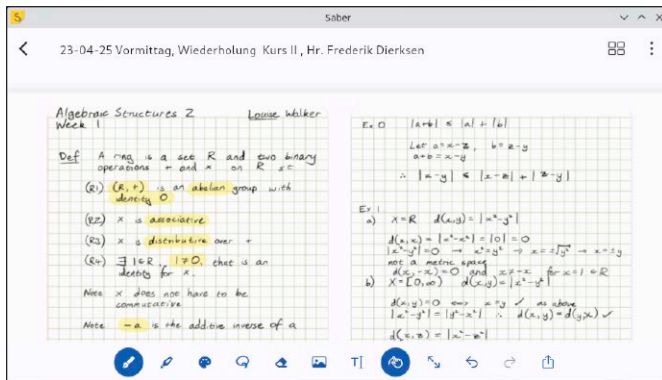 Saber
23-04-25 Vormittag, Wiederholung Kurs II , Hr. Frederik Dierksen
Algebraic Structures 2 Louise Walker
Week 1
Def A ring is a set R and two binary
operations + and × on R st
(R1) (R, +) is an abelian group with
identity 0
(R2) × is associative
(R3) × is distributive over +
(R4) ∃ 1∈R, 1≠0, that is an
identity for ×.
Note × does not have to be
commutative
Note -a is the additive inverse of a
Ex 0 |a+b| ≤ |a| + |b|
Let a=x-z, b=z-y
a+b=x-y
∴ |x-y| ≤ |x-z| + |z-y|
Ex 1
a) X=R d(x,y)=|x²-y²|
d(x,x)=|x²-x²|=|0|=0
|x²-y²|=0 → x²=y² → x=±√y² → x=±y
not a metric space
d(x,-x)=0 and x≠-x for x=1∈R
b) X=[0,∞) d(x,y)=|x²-y²|
d(x,y)=0 ⟺ x=y ✓ as above
|x²-y²|=|y²-x²| ∴ d(x,y)=d(y,x) ✓
d(x,z)=|x²-z²|
T